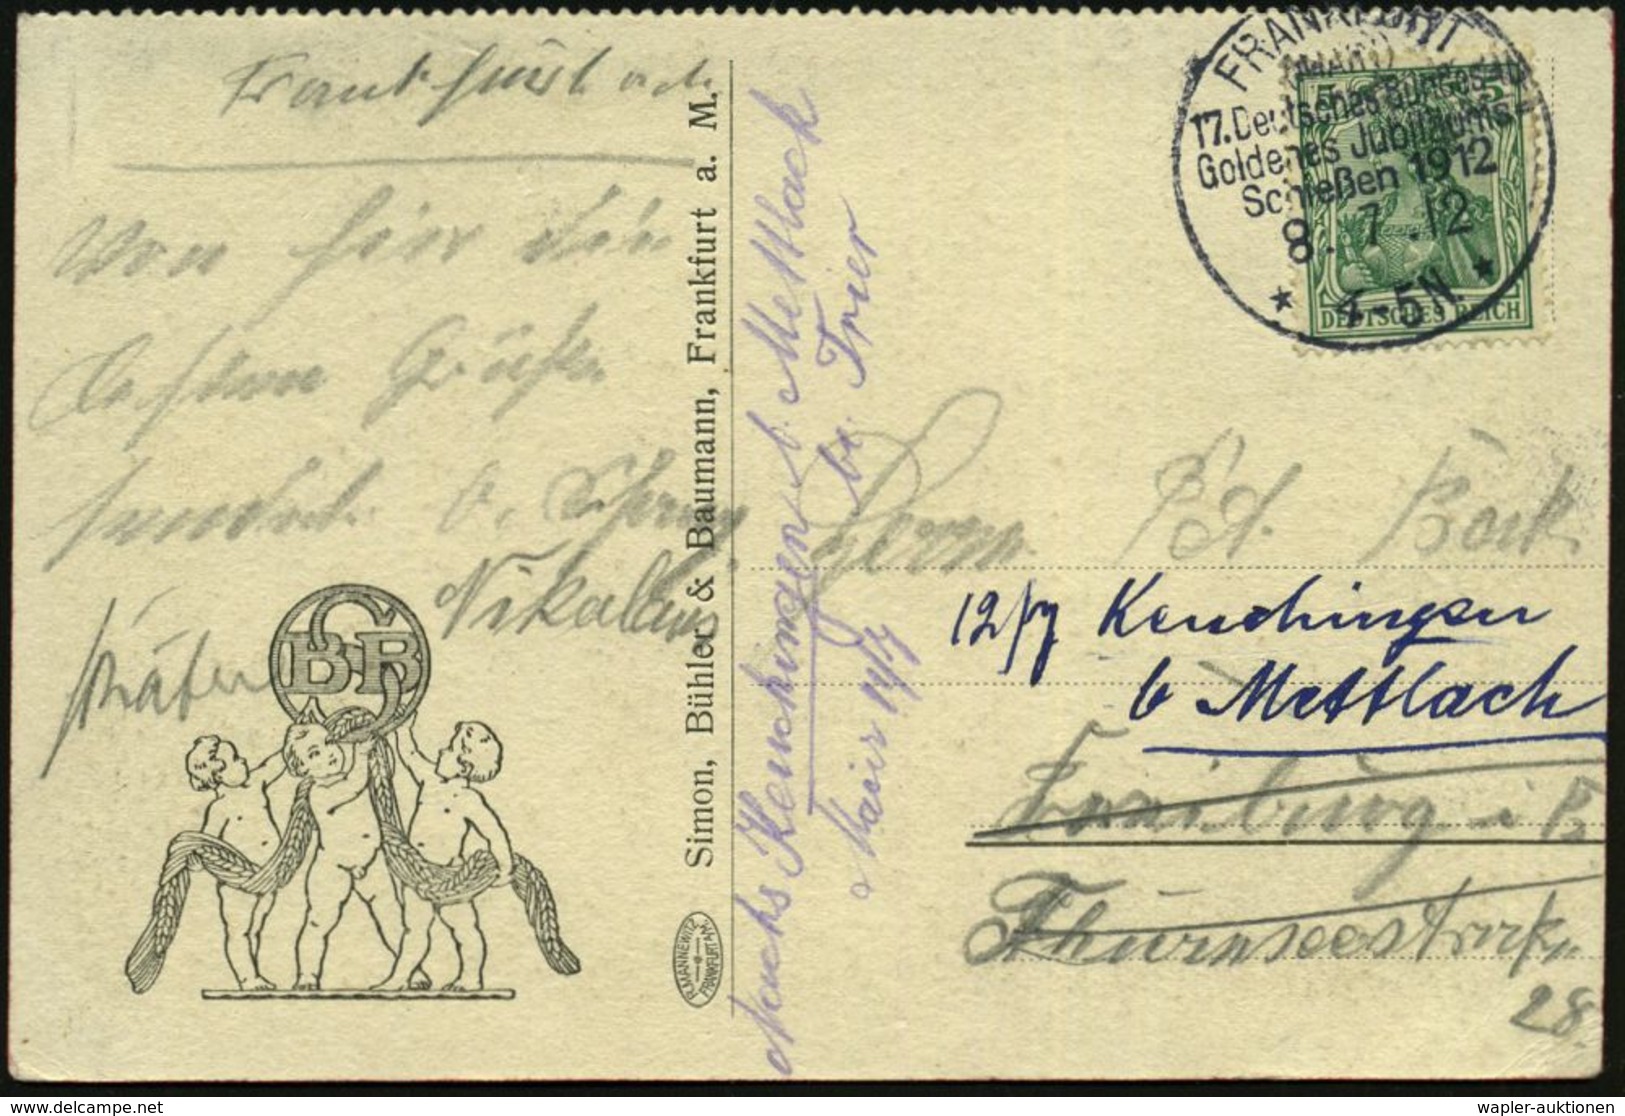 Frankfurt a. M.
Von hier die
besten Grüße
sendet
Nikolaus
BSB
Simon, Bühler & Baumann, Frankfurt a. M.
R.MANNEWITZ
FRANKFURT A/M.
FRANKFURT
(MAIN)
17.Deutsches Bundes- u.
Goldenes Jubiläums=
Schießen 1912
8. 7. 12
* 4-5N. *
5 5
DEUTSCHES REICH
Nachs Keuchingen b. Mettlach
bei Trier
14/7
Herrn
12/7 Keuchingen
b Mettlach
Freiburg i B
Thurnseestr
28.
wapler-auktionen